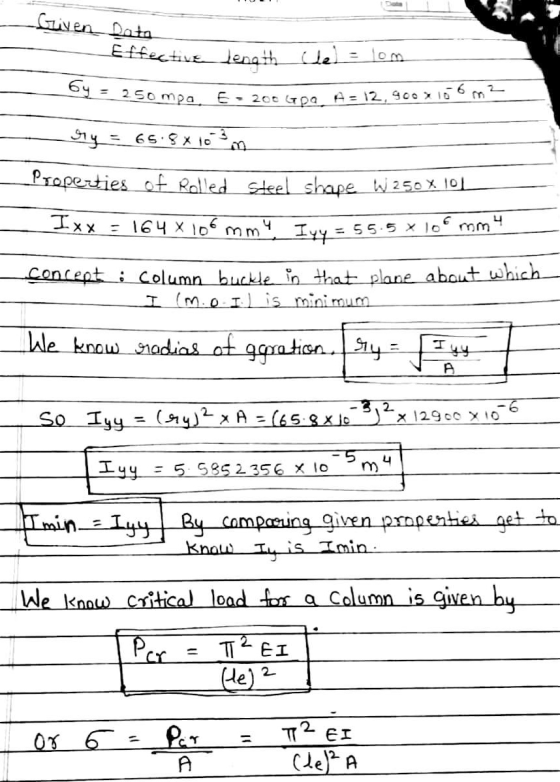 Given Data
Effective length (le) = 10m
σy = 250 mpa, E = 200 Gpa, A = 12,900 × 10⁻⁶ m²
ry = 65.8 × 10⁻³ m
Properties of Rolled steel shape W250 × 101
Ixx = 164 × 10⁶ mm⁴, Iyy = 55.5 × 10⁶ mm⁴
concept : Column buckle in that plane about which
I (m.o.I.) is minimum
We know radias of ggration. ry = √(Iyy / A)
So Iyy = (ry)² × A = (65.8 × 10⁻³)² × 12900 × 10⁻⁶
Iyy = 5.5852356 × 10⁻⁵ m⁴
Imin = Iyy By comparing given properties get to
know Iy is Imin.
We know critical load for a Column is given by
Pcr = π² EI / (le)²
Or σ = Pcr / A = π² EI / (le)² A